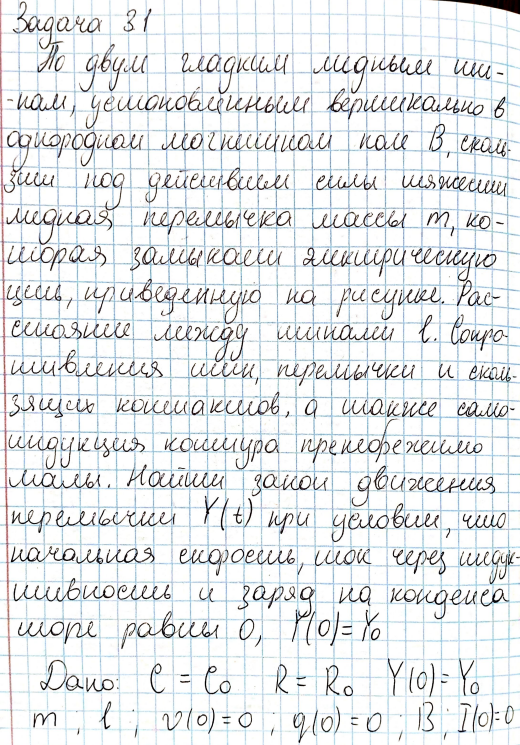 Задача 31
По двум гладким медным ши-
-нам, установленным вертикально в
однородном магнитном поле B, сколь-
зит под действием силы тяжести
медная перемычка массы m, ко-
торая замыкает электрическую
цепь, приведенную на рисунке. Рас-
стояние между шинами l. Сопро-
тивления шин, перемычки и сколь-
зящих контактов, а также само-
индукция контура пренебрежимо
малы. Найти закон движения
перемычки Y(t) при условии, что
начальная скорость, ток через индук-
тивность и заряд на конденса
торе равны 0, Y(0)=Y₀
Дано: C = C₀ R = R₀ Y(0)=Y₀
m ; l ; v(0)=0 ; q(0)=0 ; B ; I(0)=0